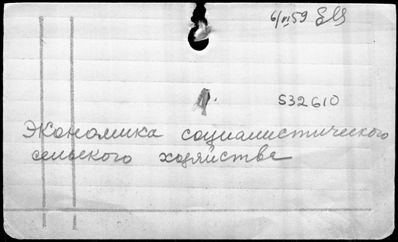 6/VI 59
532610
Экономика социалистического
сельского хозяйства